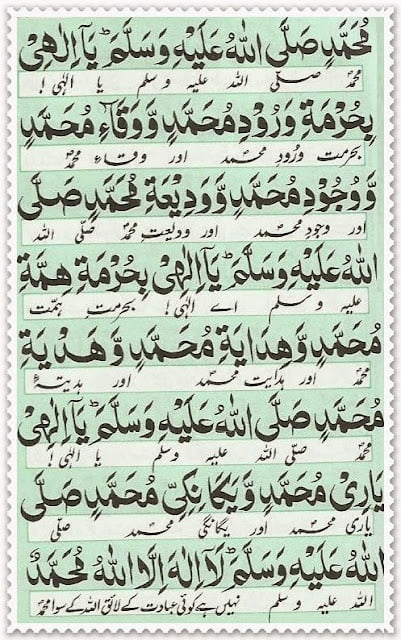 مُحَمَّدٍ صَلَّى اللهُ عَلَيْهِ وَسَلَّمَ ؕ يَآ اِلٰهِىْ
محمدؐ صلی اللہ علیہ وسلم یا الٰہی !
بِحُرْمَةِ وَرُوْدِ مُحَمَّدٍ وَّوَقَآءِ مُحَمَّدٍ
بحرمت ورُودِ محمد اور وقاء محمدؐ
وَّوُجُوْدِ مُحَمَّدٍ وَّوَدِيْعَةِ مُحَمَّدٍ صَلَّى
اور وجودِ محمد اور ودیعتِ محمدؐ صلی اللہ
اللهُ عَلَيْهِ وَسَلَّمَ ؕ يَآ اِلٰهِىْ بِحُرْمَةِ هِمَّةِ
علیہ وسلم اے الٰہی ! بحرمتِ ہمّت
مُحَمَّدٍ وَّهِدَايَةِ مُحَمَّدٍ وَّهَدْيَةِ
محمدؐ اور ہدایت محمد اور ہدیۂ
مُحَمَّدٍ صَلَّى اللهُ عَلَيْهِ وَسَلَّمَ ؕ يَآ اِلٰهِىْ
محمدؐ صلی اللہ علیہ وسلم یا الٰہی !
يَارِىْ مُحَمَّدٍ وَّيَگَانِگِىْ مُحَمَّدٍ صَلَّى
یاری محمد اور یگانگی محمد صلی
اللهُ عَلَيْهِ وَسَلَّمَ ؕ لَآ اِلٰهَ اِلَّا اللهُ مُحَمَّدٌ
اللہ علیہ وسلم نہیں ہے کوئی عبادت کے لائق اللہ کے سوا محمدؐ